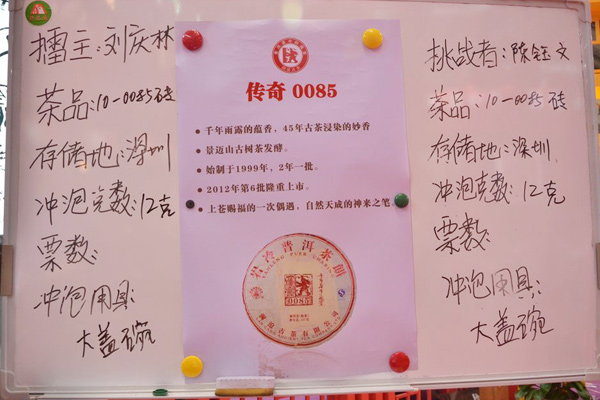 擂主:刘庆林
茶品:10-0085砖
存储地:深圳
冲泡克数:12克
票数:
冲泡用具:
大盖碗
传奇 0085
● 千年雨露的蕴香，45年古茶浸染的妙香
● 景迈山古树茶发酵。
● 始制于1999年，2年一批。
● 2012年第6批隆重上市。
● 上苍赐福的一次偶遇，自然天成的神来之笔。
岩冷普洱茶
0085
挑战者:陈钰文
茶品:10-0085砖
存储地:深圳
冲泡克数:12克
票数:
冲泡用具:
大盖碗